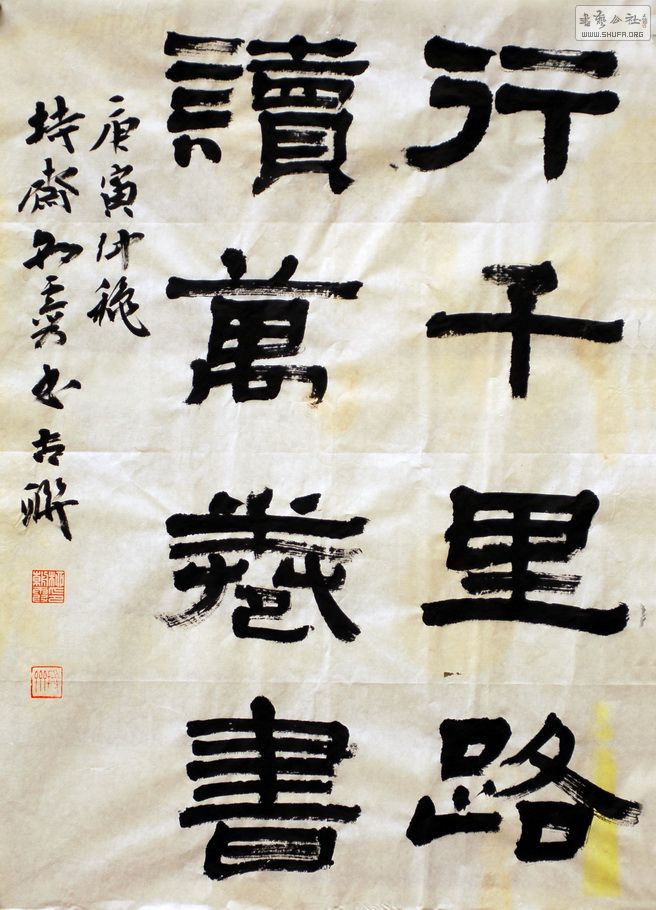 行千里路
讀萬卷書
庚寅仲秋
書古聯
書藝公社
WWW.SHUFA.ORG